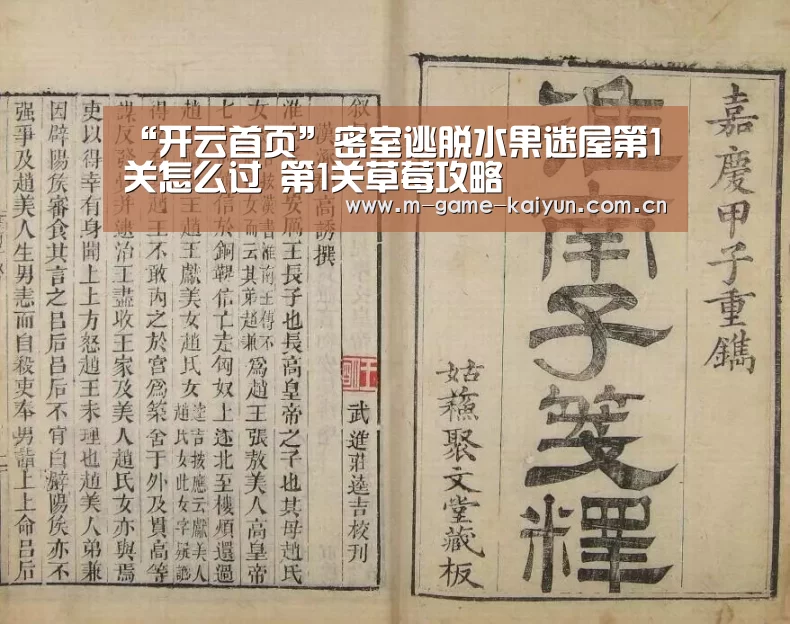 “开云首页”密室逃脱水果迷屋第1
关怎么过 第1关草莓攻略
www.m-game-kaiyun.com.cn
嘉慶甲子重鐫
淮南子箋釋
姑蘇聚文堂藏板
高誘撰
武進莊逵吉校刊
安厲王長子也長高皇帝之子也其母趙氏
女而云其弟趙兼爲趙王張敖美人高皇帝
七 信於銅鞮信亡走匈奴上遂北至樓煩還過
趙 趙王獻美女趙氏女 逵吉按應云獻美人趙氏女此女字疑譌
得 趙王不敢內之於宮爲築舍于外及貫高等
謀反發 并逮治王盡收王家及美人趙氏女亦與焉
吏以得幸有身聞上上方怒趙王未理也趙美人弟兼
因辟陽侯審食其言之呂后呂后不肯白辟陽侯亦不
強爭及趙美人生男恚而自殺吏奉男詣上上命呂后